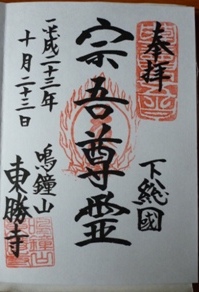 奉拝
下総國
宗吾尊霊
平成二十三年
十月二十三日
鳴鐘山
東勝寺